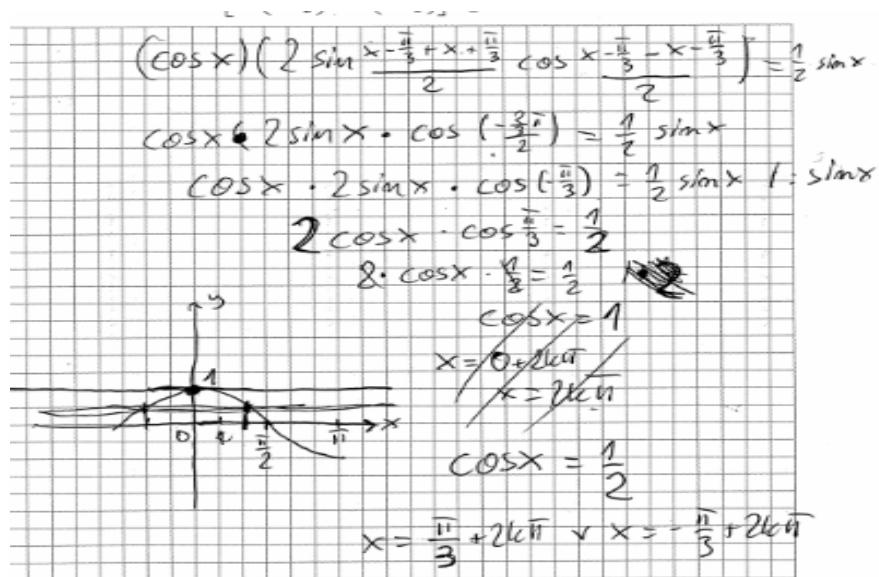 (cosx)(2 sin (x-π/3+x+π/3)/2 cos (x-π/3-x-π/3)/2) = 1/2 sinx
cosx · 2sinx · cos (-(2/3π)/2) = 1/2 sinx
cosx · 2sinx · cos(-π/3) = 1/2 sinx /: sinx
2 cosx · cos π/3 = 1/2
2 · cosx · 1/2 = 1/2
cosx = 1
x = 0+2kπ
x = 2kπ
y
1
0 π/2 π x
cosx = 1/2
x = π/3 + 2kπ v x = -π/3 + 2kπ